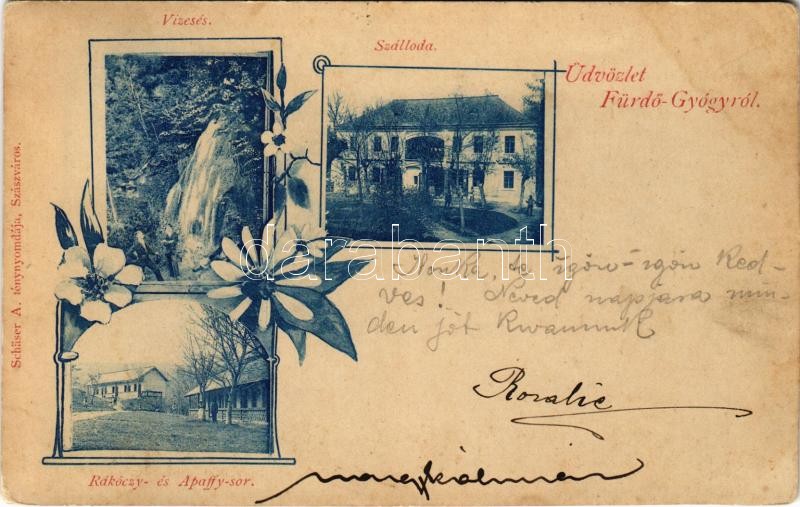 Vizesés.
Szálloda.
Üdvözlet
Fürdő-Gyógyról.
Schäser A. fénynyomdája, Szászváros.
darabanth
te igön-igön Ked-
ves! Neved napjára min-
den jót kivánunk
Rozalie
Rákóczy- és Apaffy-sor.